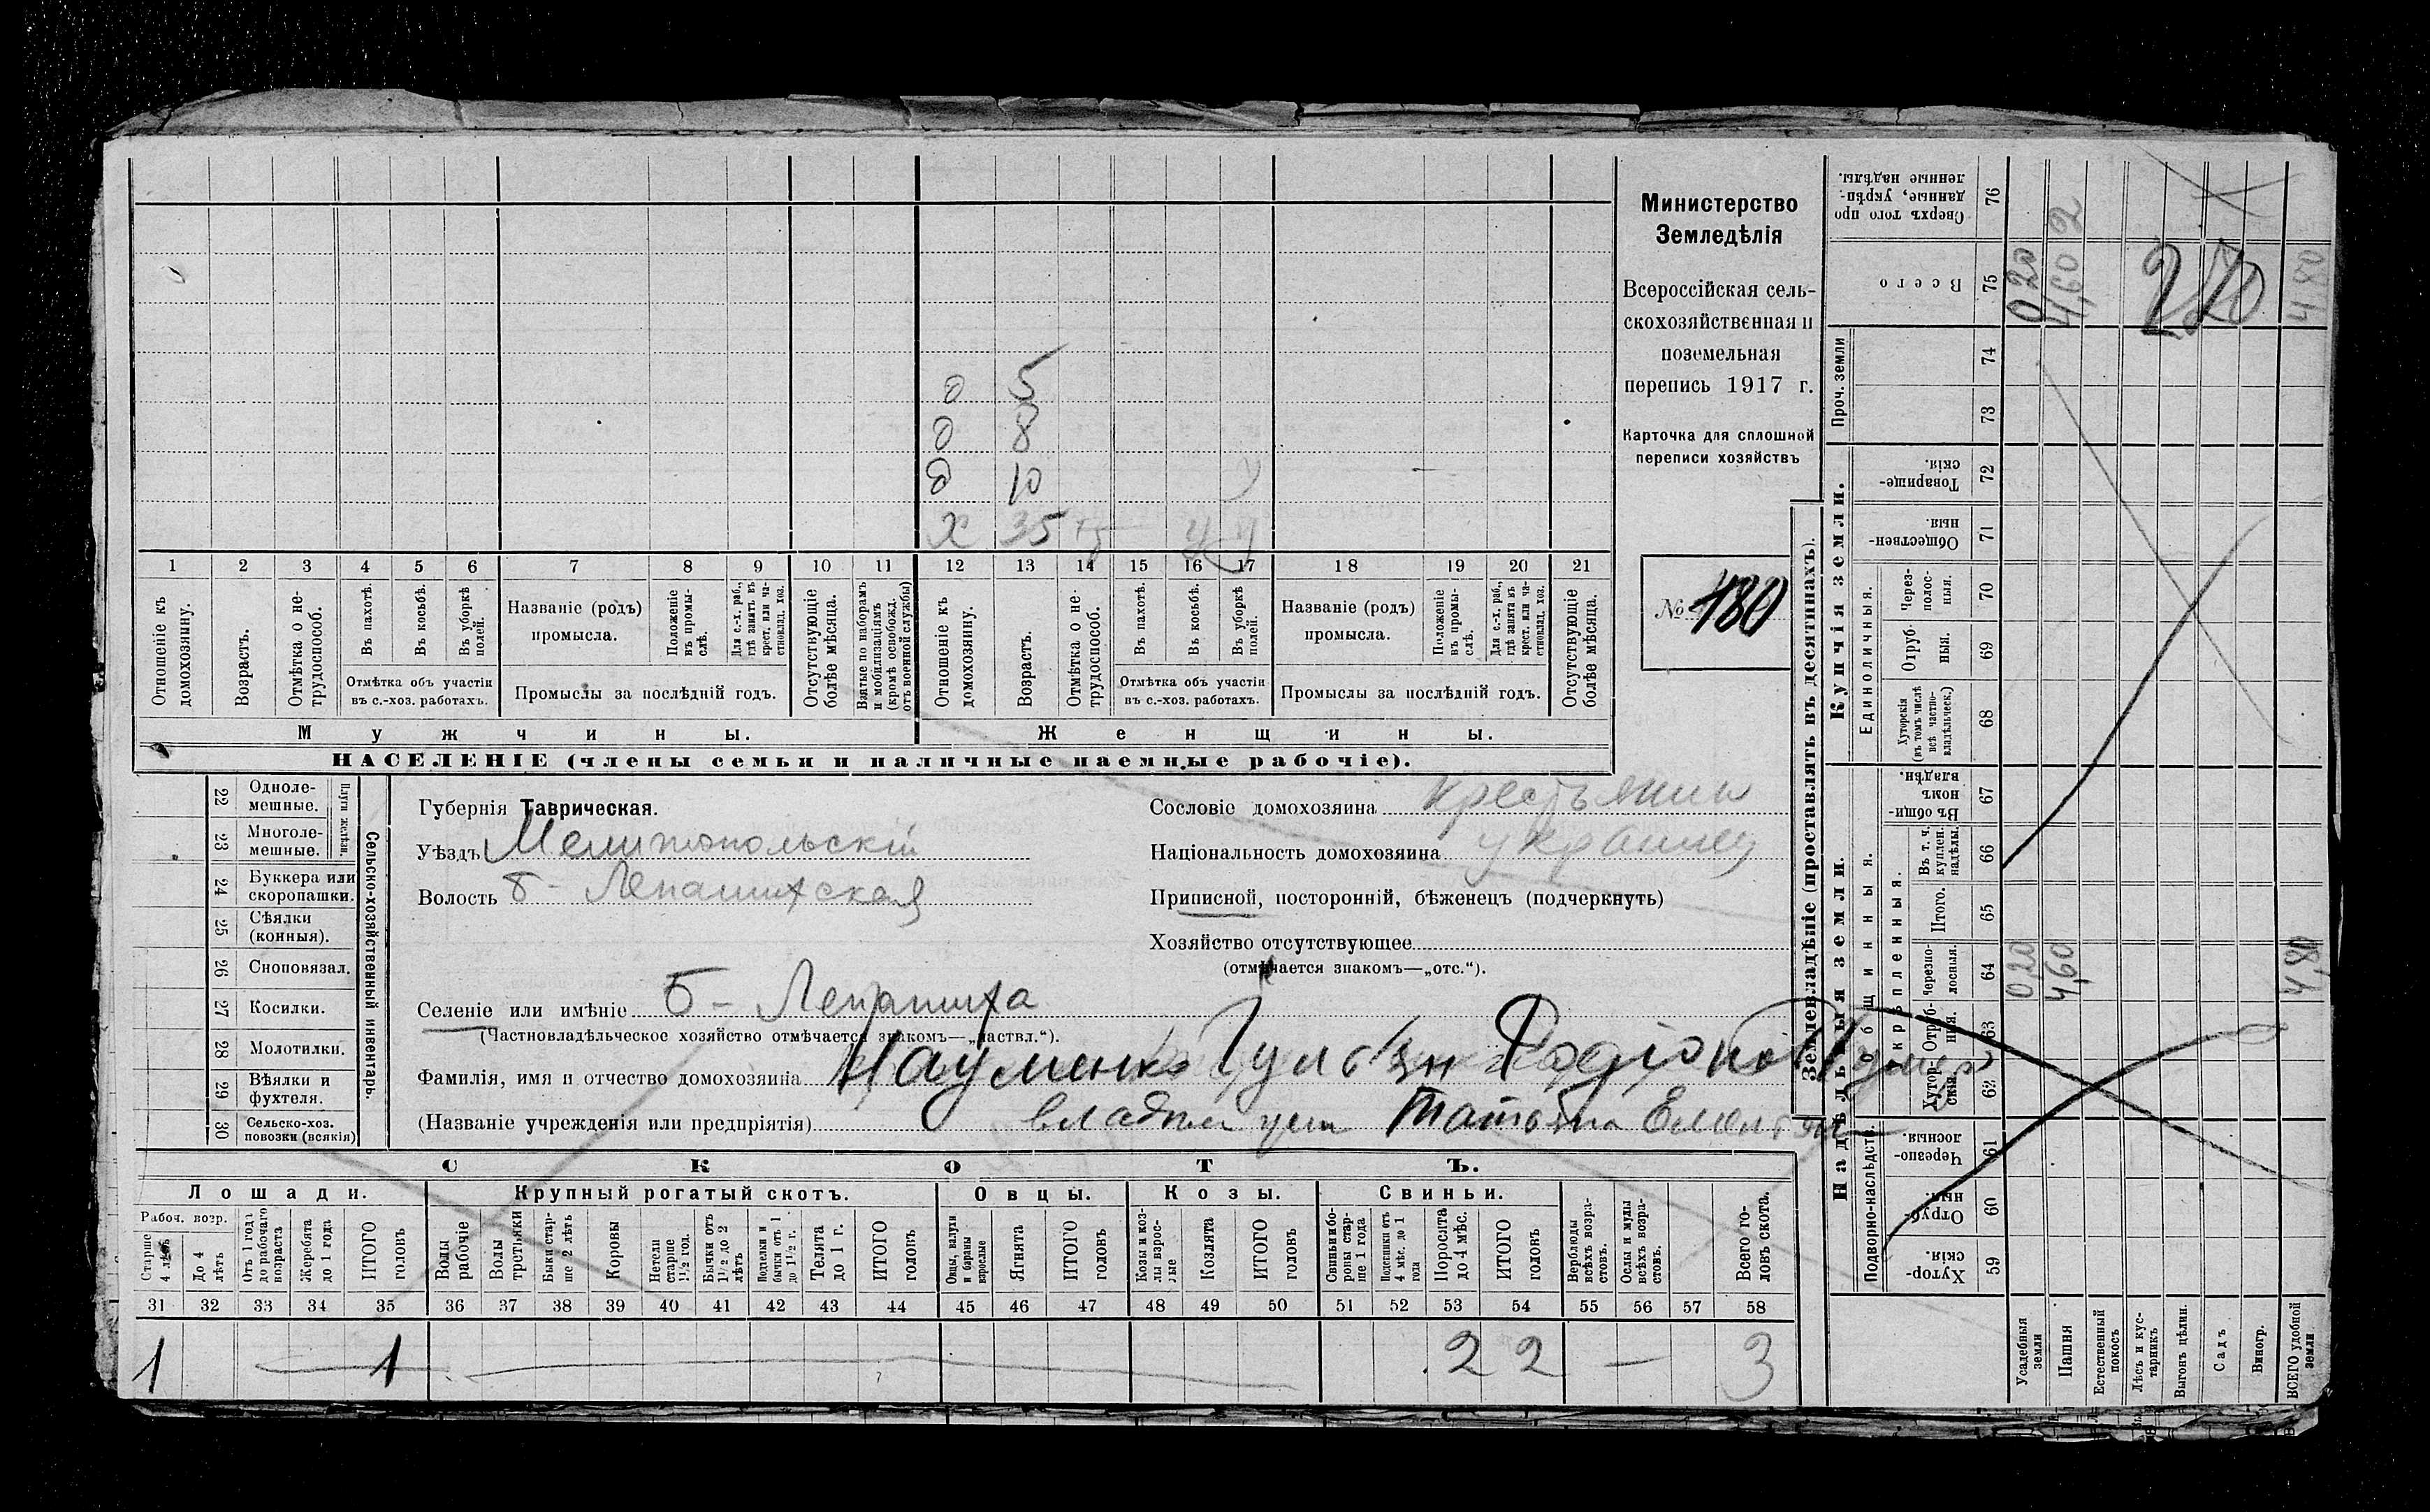 Министерство
Земледѣлія
Всероссійская сель-
скохозяйственная и
поземельная
перепись 1917 г.
Карточка для сплошной
переписи хозяйствъ
№ 180
о 5
о 8
д 10
х 35
1 2 3 4 5 6 7 8 9 10 11 12 13 14 15 16 17 18 19 20 21
Отношеніе къ домохозяину.
Возрастъ.
Отмѣтка о не-трудоспособ.
Въ пахотѣ.
Въ косьбѣ.
Въ уборкѣ полей.
Отмѣтка объ участіи
въ с.-хоз. работахъ.
Названіе (родъ)
промысла.
Положеніе въ промы-слѣ.
Для с.-х. раб., гдѣ занятъ въ крест. или ча-стновлад. хоз.
Промыслы за послѣдній годъ.
Отсутствующіе болѣе мѣсяца.
Взятые по наборамъ и мобилизаціямъ (кромѣ освобожд. отъ военной службы)
Отношеніе къ домохозяину.
Возрастъ.
Отмѣтка о не-трудоспособ.
Въ пахотѣ.
Въ косьбѣ.
Въ уборкѣ полей.
Отмѣтка объ участіи
въ с.-хоз. работахъ.
Названіе (родъ)
промысла.
Положеніе въ промы-слѣ.
Для с.-х. раб., гдѣ занята въ крест. или ча-стновлад. хоз.
Промыслы за послѣдній годъ.
Отсутствующіе болѣе мѣсяца.
Мужчины.
Женщины.
НАСЕЛЕНІЕ (члены семьи и наличные наемные рабочіе).
Сельско-хозяйственный инвентарь.
Плуги желѣзн.
22 Одноле-мешные.
23 Многоле-мешные.
24 Буккера или скоропашки.
25 Сѣялки (конныя).
26 Сноповязал.
27 Косилки.
28 Молотилки.
29 Вѣялки и фухтеля.
30 Сельско-хоз. повозки (всякія)
Губернія Таврическая.
Уѣздъ Мелитопольскій
Волость Б-Лепатихская
Селеніе или имѣніе Б-Лепатиха
(Частновладѣльческое хозяйство отмѣчается знакомъ—„частвл.“).
Фамилія, имя и отчество домохозяина Науменко
(Названіе учрежденія или предпріятія)
Татьяна
Сословіе домохозяина крестьянин
Національность домохозяина украинец
Приписной, посторонній, бѣженецъ (подчеркнуть)
Хозяйство отсутствующее
(отмѣчается знакомъ—„отс.“).
СКОТЪ.
Лошади.
Крупный рогатый скотъ.
Овцы.
Козы.
Свиньи.
Рабоч. возр.
Старше 4 лѣтъ
До 4 лѣтъ
Отъ 1 года до рабочаго возраста
Жеребята до 1 года
ИТОГО головъ
Волы рабочіе
Волы третьяки
Быки стар-ше 2 лѣтъ
Коровы
Нетели старше 1½ год.
Бычки отъ 1½ до 2 лѣтъ
Подтелки и бычки отъ 1 до 1½ г.
Телята до 1 г.
ИТОГО головъ
Овцы, валухи и бараны взрослые
Ягнята
ИТОГО головъ
Козы и коз-лы взрос-лые
Козлята
ИТОГО головъ
Свиньи и бо-ровы стар-ше 1 года
Подсвинки отъ 4 мѣс. до 1 года
Поросята до 4 мѣс.
ИТОГО головъ
Верблюды всѣхъ возра-стовъ.
Ослы и мулы всѣхъ возра-стовъ.
Всего го-ловъ скота.
31 32 33 34 35 36 37 38 39 40 41 42 43 44 45 46 47 48 49 50 51 52 53 54 55 56 57 58
1 1 2 2 — 3
Землевладѣніе (проставлять въ десятинахъ).
Купчія земли.
Надѣльныя земли.
Проч. земли
Единоличныя.
Общинныя.
Укрѣпленныя.
Подворно-наслѣдств.
76 Сверхъ того про данные, укрѣп-ленные надѣлы.
75 Всего
74
73
72 Товарище-скія.
71 Обществен-ныя.
70 Через-полос-ныя.
69 Отруб-ныя.
68 Хуторскія (въ томъ числѣ всѣ частно-владѣльческ.)
67 Въ общи-номъ владѣн.
66 Въ т. ч. куплен. надѣлы.
65 Итого.
64 Черезпо-лосныя.
63 Отруб-ныя.
62 Хутор-скія.
61 Черезпо-лосныя.
60 Отруб-ныя.
59 Хутор-скія.
0 20
4,60
2
270
4,80
0 20
4,60
4,80
Усадебныя земли
Пашня
Естественный покосъ
Лѣсъ и кус-тарникъ
Выгонъ цѣлин.
Садъ
Виногр.
ВСЕГО удобной земли